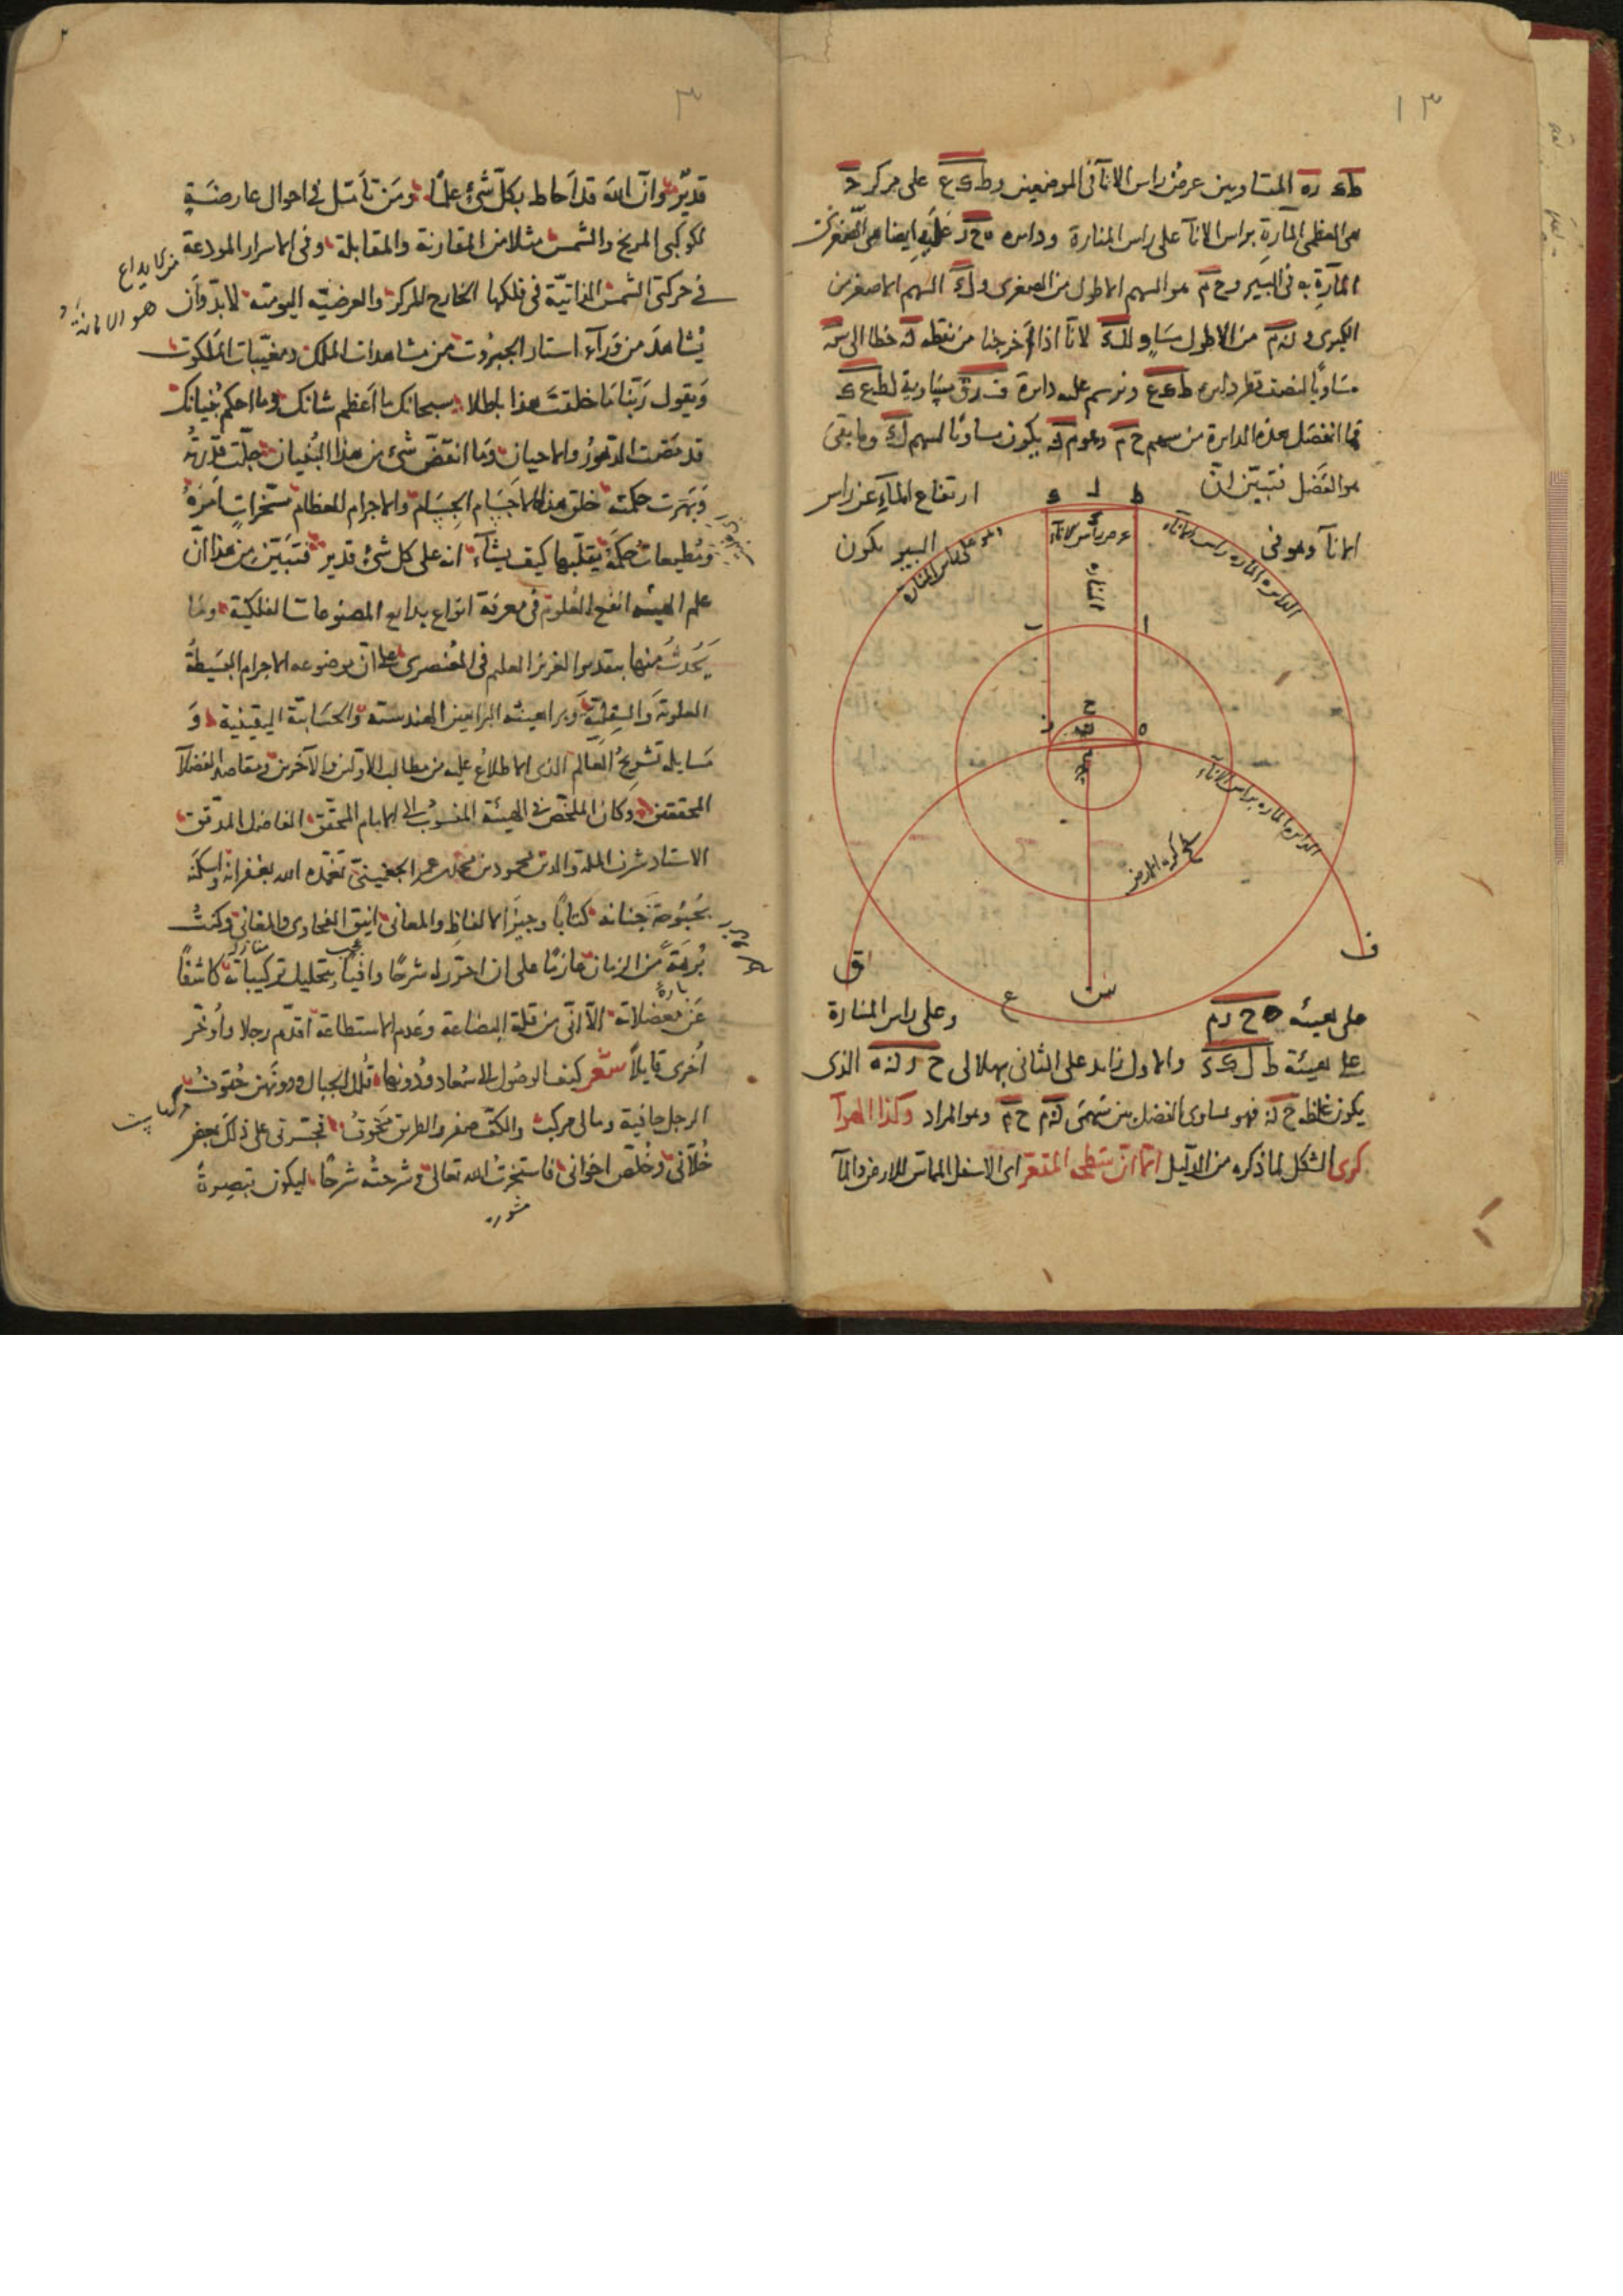 ١٣
ط‍ى ره المتساويين عرض راس الانآ فى الموضعين و ط ى ع على مركز د
هى العظمى المآرة براس الانآ على راس المنارة ودايره ه ح ر عليه ايضا هى الصغرى
المآرة به فى البير و ح م هو السهم الاطول من الصغرى و ل ك السهم الاصغر من
الكبرى و م من الاطول مساو ل لانا اذا اخرجنا من نقطه خطا الى س
مساويا لنصف قطر دايره ط ى ع ونرسم عليه دايرة ف ر ق مساوية لط ع ى
فما انفصل بهذه الدايرة من سهم ح م وهو م يكون مساويا لسهم ل ك وما بقى
هو الفضل فتبين ان
ارتفاع المآء عن راس
الانآ وهو فى
البير يكون
ط ل ى
عرض راس الانآء
الدايره الماره براس الانآء
وهو على راس المنارة
المناره
ا ب
ح
ه ر
الدايره الماره براس الانآء
سطح كرة الارض
ف ق
س ع
على هيئه ه ح ر م
وعلى راس المنارة
على هيئة ط ل ى ك والاول زايد على الثانى بهلالى ح ر ه الذى
يكون غلظه ح فهو يساوى الفضل بين سهمى م ح م وهو المراد وكذا الهوآ
كرى الشكل لما ذكره من الدليل الا ان سطحه المقعر اى الاسفل المماس للارض والمآ
٣
قدير وان الله قد احاط بكل شئ علما ومن تامل فى احوال عارضة
لكوكبى المريخ والشمس مثلا من المقارنة والمقابلة وفى الاسرار المودعة
فى حركتى الشمس الذاتية فى فلكها الخارج المركز والعرضيه اليوميه لابد وان
يشاهد من ورآء استار الجبروت من مشاهدات الملك ومغيبات الملكوت
ويقول ربنا ما خلقت هذا باطلا سبحانك ما اعظم شانك وما احكم بنيانك
قد مضت الدهور والاحيان وما انتقض شئ من هذا البنيان جلت قدرته
وبهرت حكمته خلق هذه الاجسام الجسام والاجرام العظام مسخرات امره
ومطيعات حكمه يقلبها كيف يشآء انه على كل شئ قدير فتبين من هذا ان
علم الهيئه انفع العلوم فى معرفة انواع بدايع المصنوعات الفلكية وما
يحدث منها بتقدير العزيز العليم فى العنصرى على ان موضوعه الاجرام البسيطة
العلوية والسفلية وبراهينه البراهين الهندسته والحسابية اليقينية و
مسايله تشريح العالم الذى الاطلاع عليه من مطالب الاولين والآخرين ومقاصد الفضلآ
المحققين وكان الملخص فى الهيئة المنسوب الى الامام المحقق الفاضل المدقق
الاستاد شرف الملة والدين محمود بن محمد بن عمر الجغمينى تغمده الله بغفرانه واسكنه
بحبوحة جنانه كتابا وجيز الالفاظ والمعانى انيق الفحاوى والمغانى وكنت
برهة من الزمان عازما على ان احرر له شرحا وافيا بتحليل تركيباته كاشفا
عن معضلاته الا انى من قلة البضاعة وعدم الاستطاعة اقدم رجلا واوخر
اخرى قايلا شعر كيف الوصول الى سعاد ودونها قلل الجبال ودونهن حتوف
الرجل حافية ومالى مركب والكف صفر والطريق مخوف فحرضنى على ذلك بعض
خلانى وخلص اخوانى فاستخرت الله تعالى وشرحته شرحا ليكون تبصرة